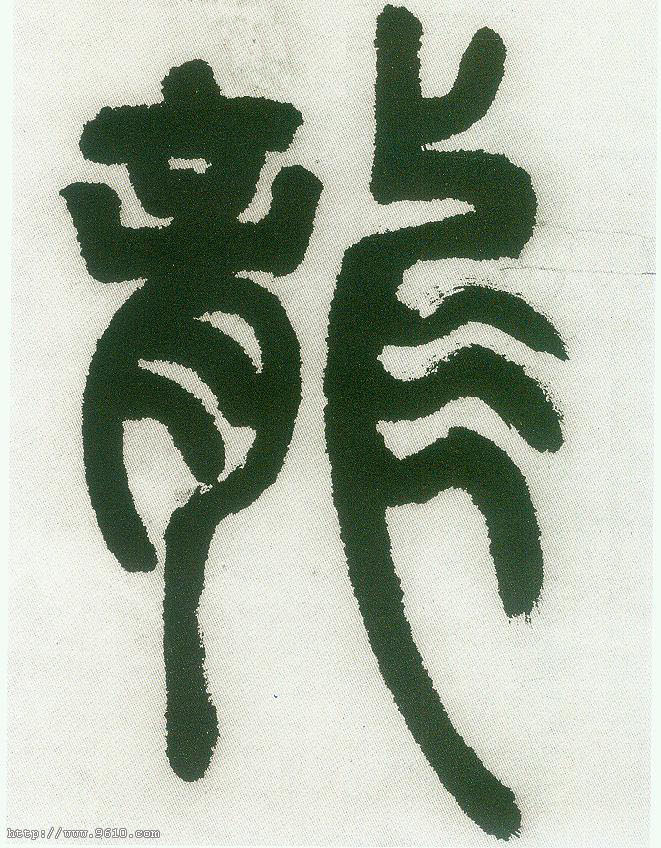 龍
http://www.9610.com